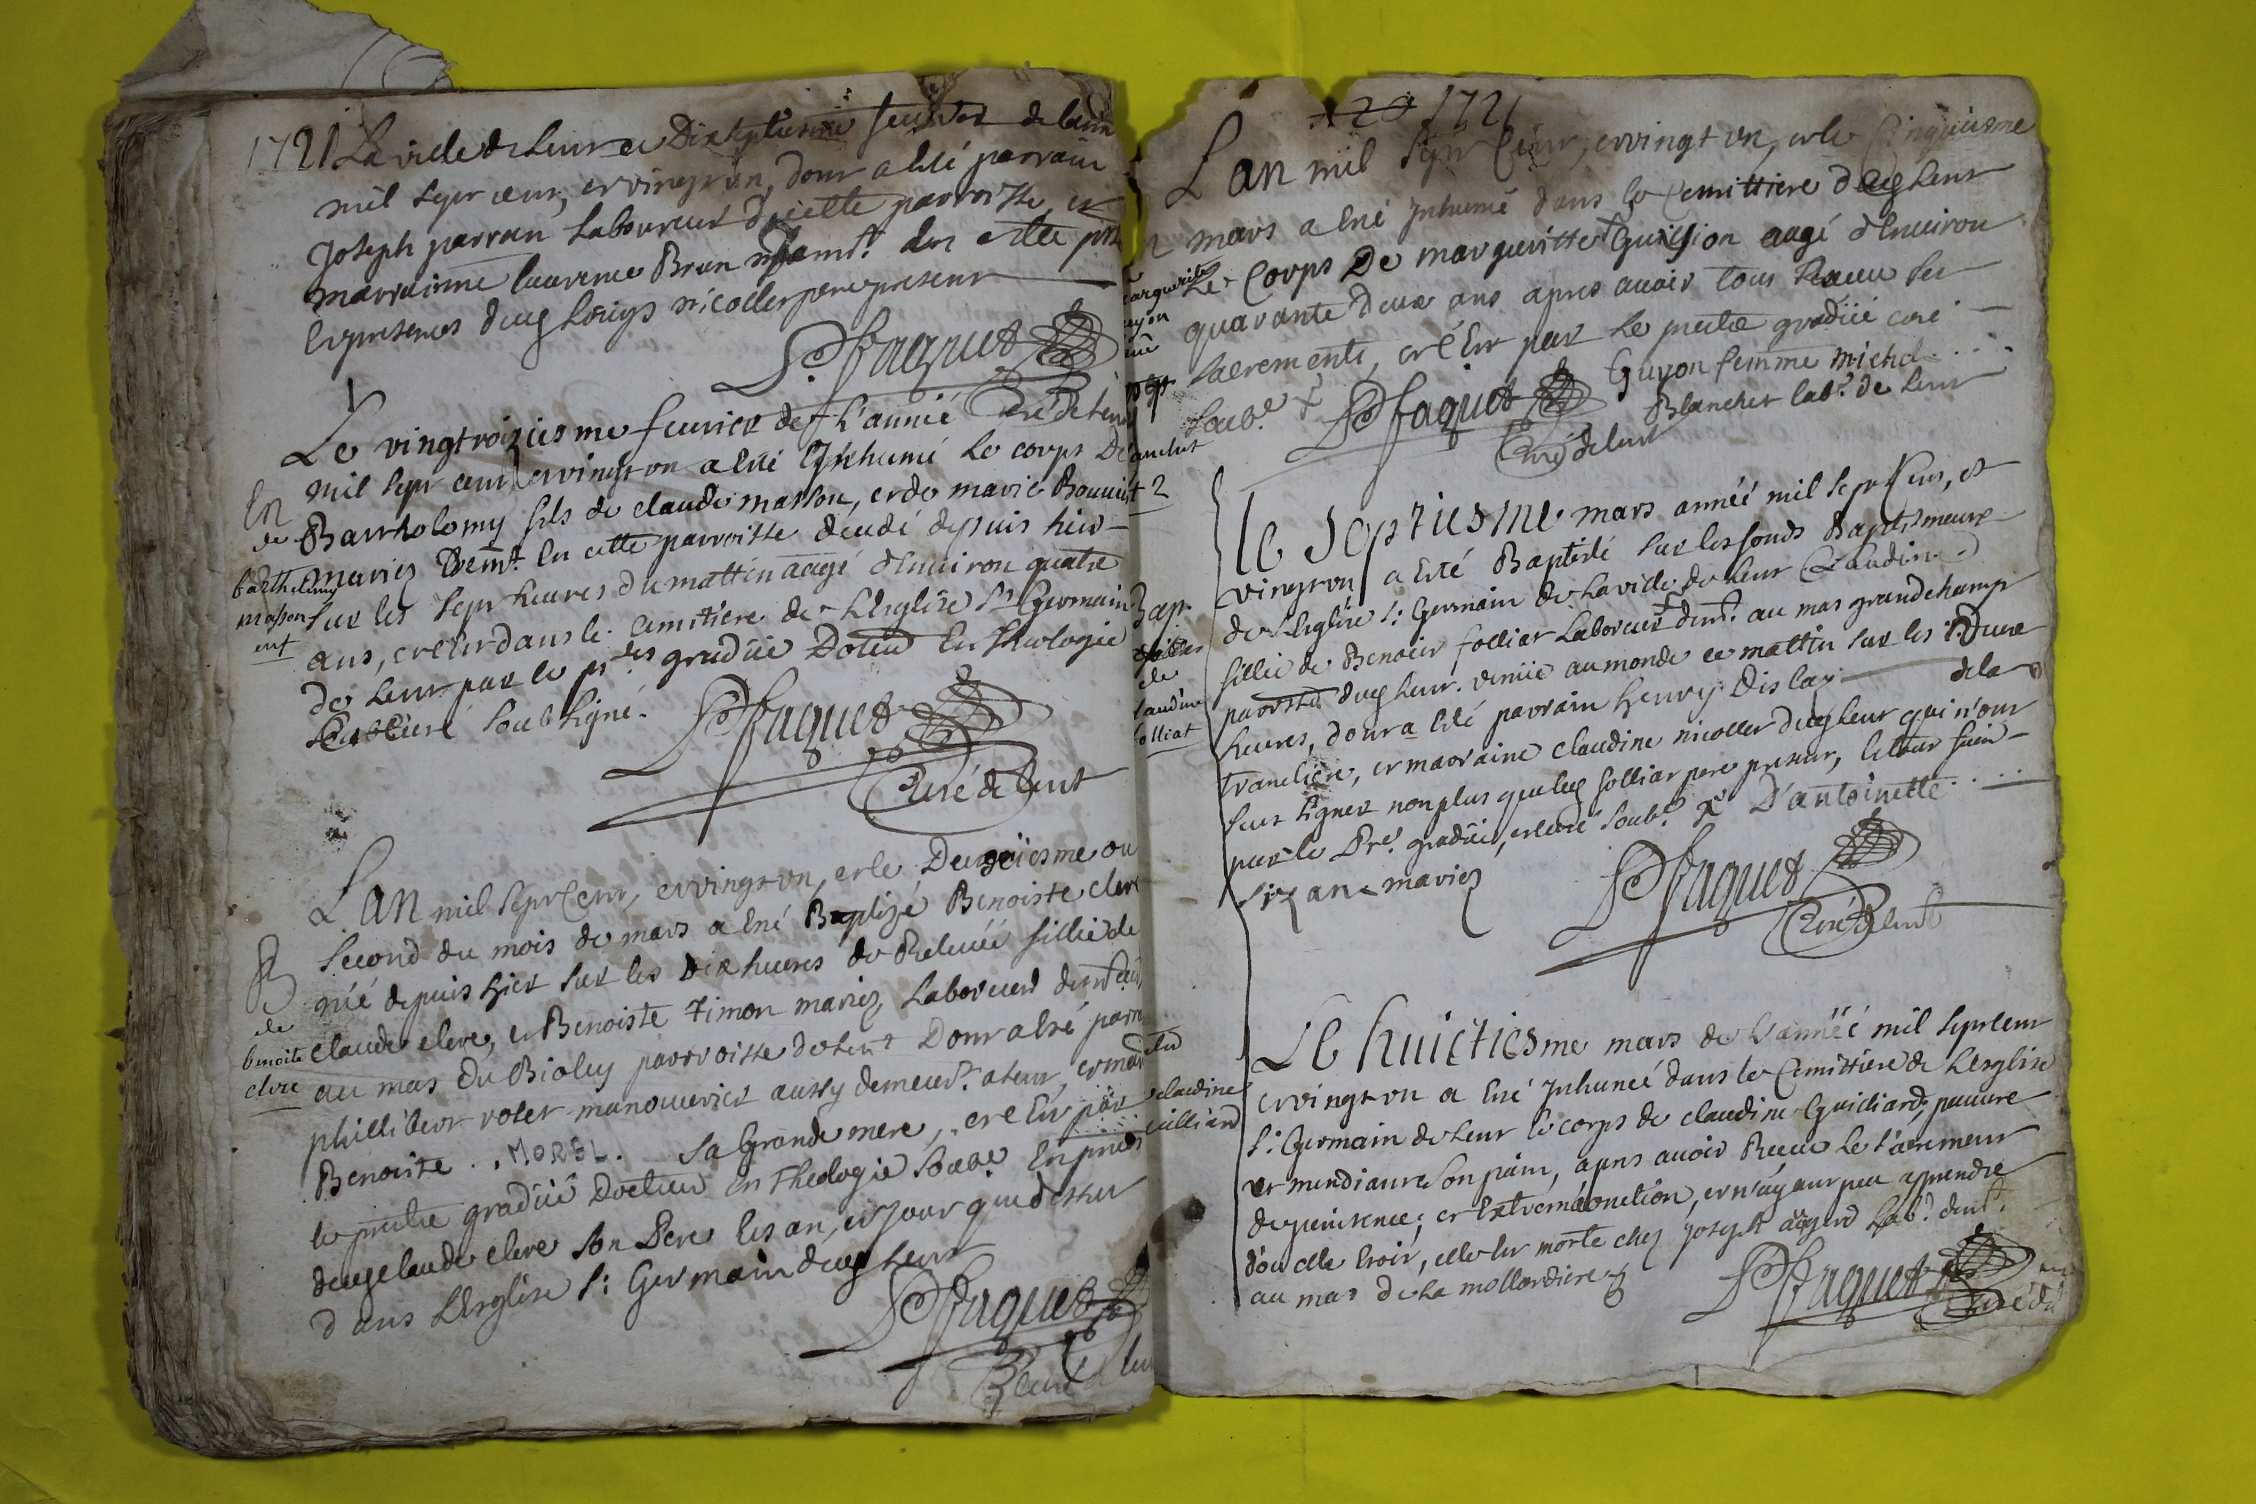 1721 La ville de Lent ce Dixseptiesme feuvrier de lann
mil sept cent, et vingt vn, dont a esté parrain
Joseph parran Laboureur de cette parroisse, et
marrainne laurence Brun
Les presences dudt Louys nicollet pere present
P. faguet
Curé de Lent
Le vingtroiziesme feurier de l'année
mil sept cent et vingt vn a esté Inhumé Le corps De
Barthelomy fils de claude masson, et de marie Bouuie
mariez dem.t En cette parroisse decedé depuis hier
sur les sept heures du mattin aagé d'Enuiron quatre
ans, et c'est dans le cemittiere de L'Esglise St Germain
de Lent par le gradüé Docteur En Theologie
Curé soubsigné.
P. faguet
Curé de Lent
En
de
barthelemy
masson
ent
L'an mil sept cent, et vingt vn, et le Deuxiesme ou
second du mois de mars a esté Baptizé Benoiste clere
née depuis hier sur les dix heures de Releuée fillie de
claude clere, et Benoiste Timon mariez, Laboureur
au mas du Bioley parroisse de Lent Dont a esté parr
phillibert volet manouurier aussy demeur.t a Lent, et mar
Benoiste . . MOREL . sa Grande mere, et c'est par
le prestre gradüé Docteur en Theologie soub.é En presence
dudt claude clere son Pere Les an, et jour que dessus
dans L'Esglise St Germain dudt Lent
P. faguet
Curé de Len
B
de
benoite
clere
1721
L'an mil sept cent, et vingt vn, et le Cinquiesme
mars a esté Inhumé dans le Cemittiere dudt Lent
Le Corps De margueritte Guission aagé d'Enuiron
quarante deux ans apres auoir tous Receu ses
sacrements, et c'est par Le prestre gradüé curé
soub.é P. faguet Guyon femme michel . . .
Blanchet lab.r de Lent
Curé de Lent
Le Septiesme mars année mil sept Cens, et
vingt vn a esté Baptisé sur les fonds Baptismaux
de L'Esglise St Germain de La ville de Lent Claudine
fillie de Benoist folliat Laboureur dem.t au mas grandchamp
parroisse dudt Lent. venüe au monde ce mattin sur les Deux
heures, dont a esté parrain henry Dislay de la
tranclière, et marraine claudine nicollet dudt Lent qui n'ont
sceu signer non plus que led folliat pere present, le tout fuit
par le Pre gradüé, et curé soub.é D'antoinette . . .
P. faguet
Curé de Lent
folliat
Le huictiesme mars de L'année mil sept cent
et vingt vn a esté Inhumée dans le Cemittiere de L'Esglise
St Germain de Lent le corps de claudine Guilliard, pauure
et mendiant son pain, apres auoir Receu Le sacrement
de penitence, et Extreme onction, et n'ayant peu apprendre
d'où elle Estoit, elle est morte chez Joseph Lab.r dem.t
au mas De La mollardiere
P. faguet
Curé du
claudine